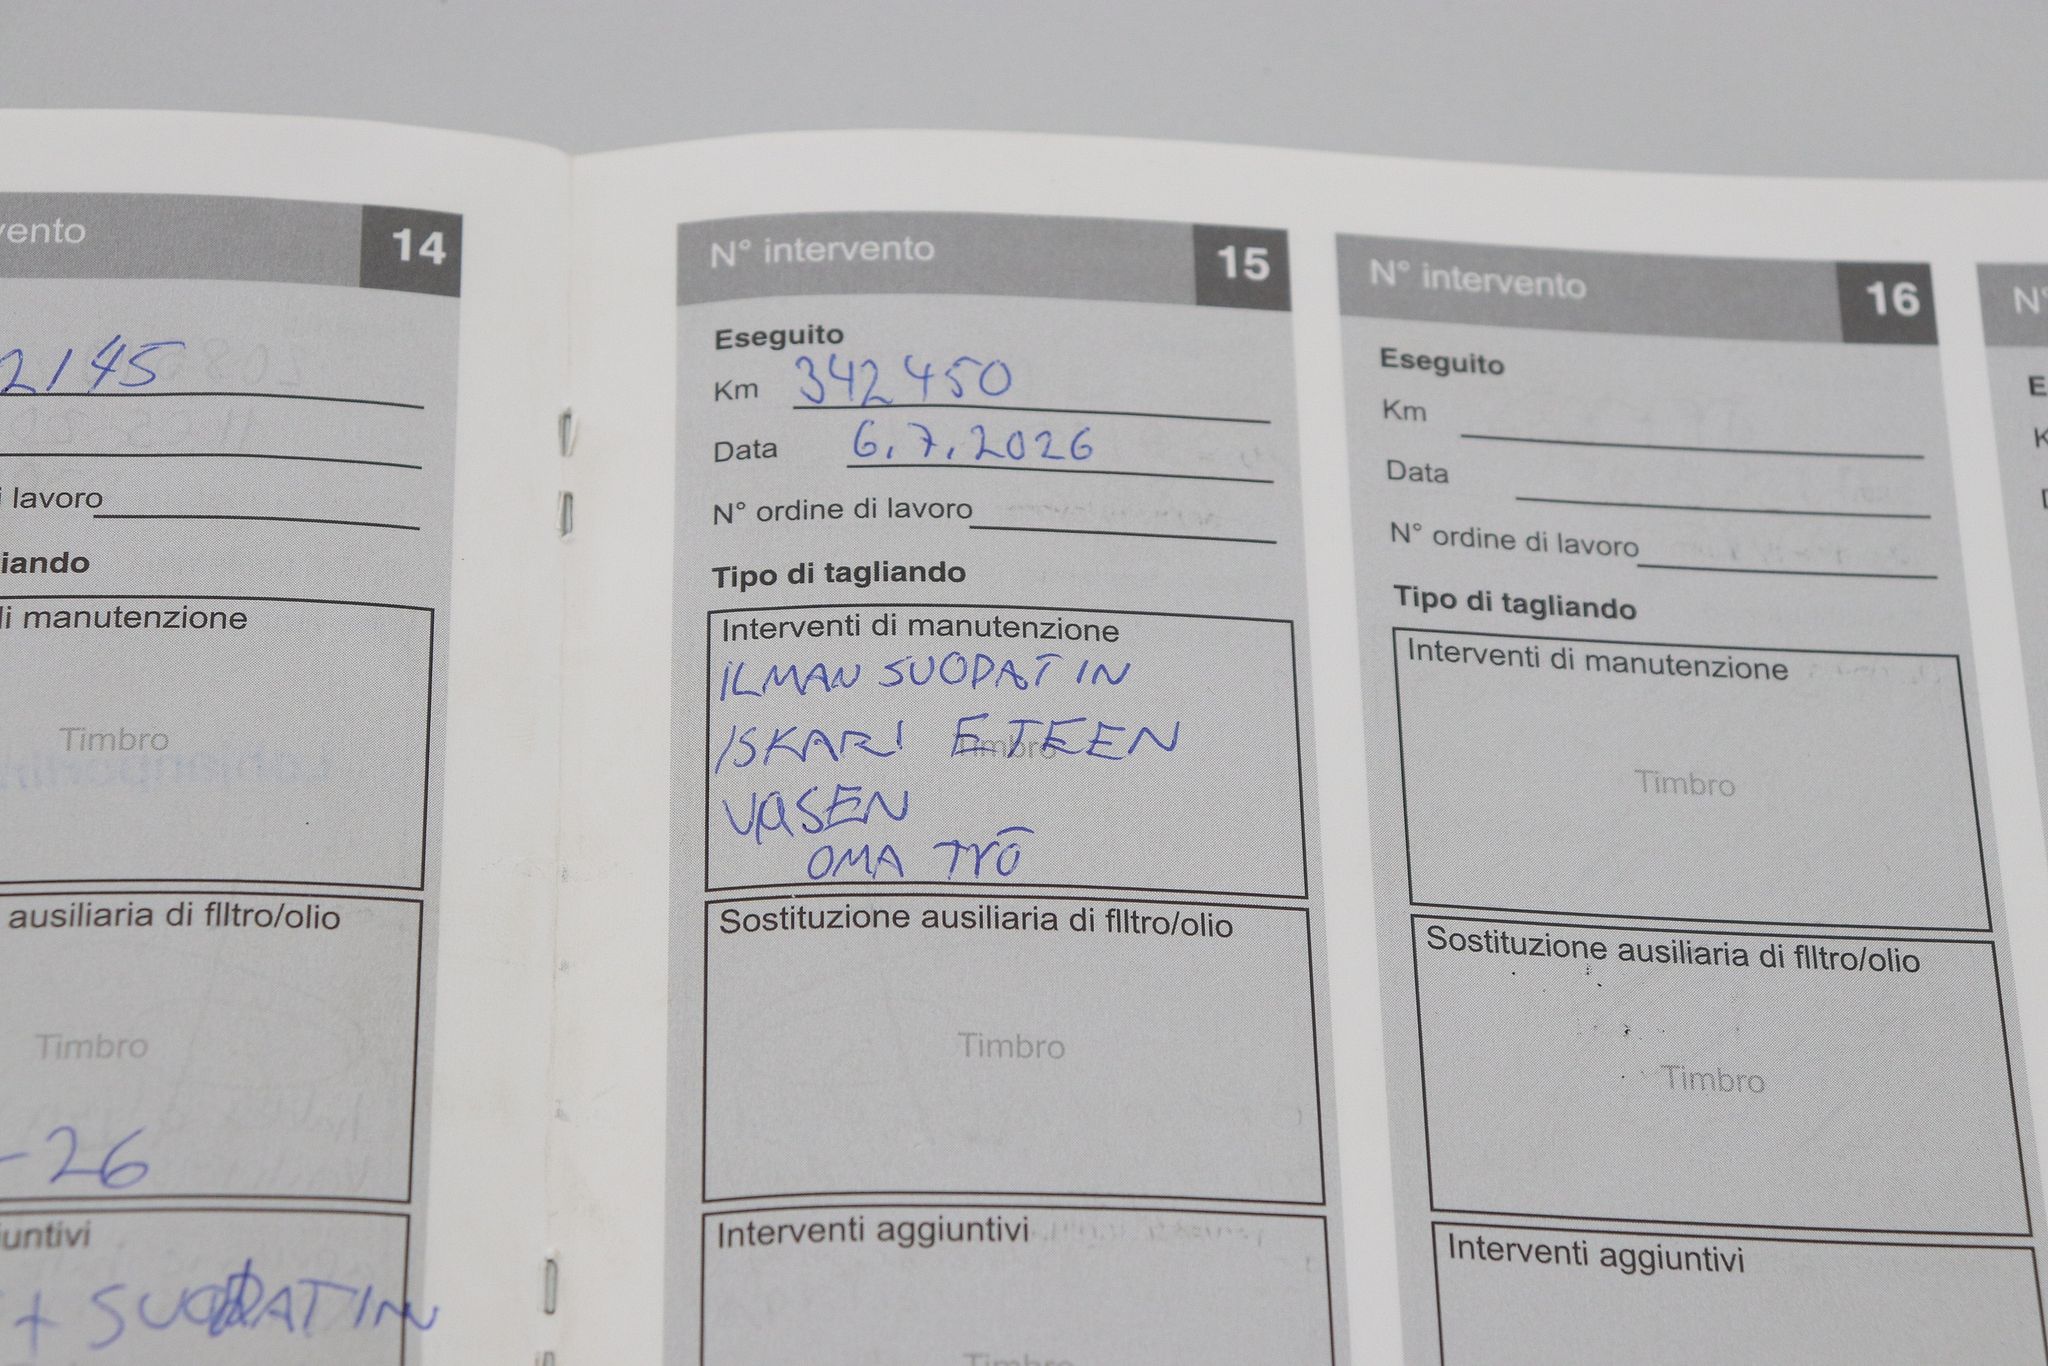 vento 14
2145
i lavoro
iando
di manutenzione
Timbro
ausiliaria di flltro/olio
Timbro
-26
iuntivi
+ SUODATIN
N° intervento 15
Eseguito
Km 342450
Data 6.7.2026
N° ordine di lavoro
Tipo di tagliando
Interventi di manutenzione
ILMAN SUODATIN
ISKARI ETEEN
Timbro
VASEN
OMA TYÖ
Sostituzione ausiliaria di flltro/olio
Timbro
Interventi aggiuntivi
Timbro
N° intervento 16
Eseguito
Km
Data
N° ordine di lavoro
Tipo di tagliando
Interventi di manutenzione
Timbro
Sostituzione ausiliaria di flltro/olio
Timbro
Interventi aggiuntivi
N°
E